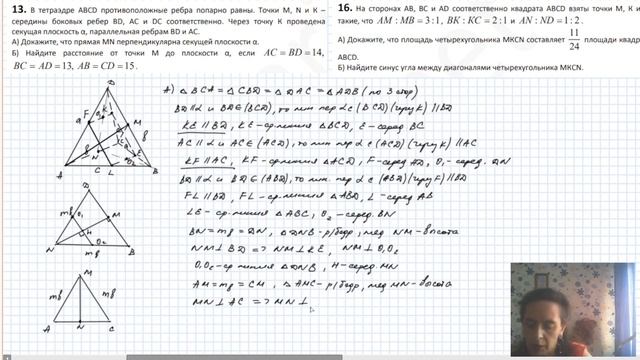 13. В тетраэдре ABCD противоположные ребра попарно равны. Точки M, N и K –
середины боковых ребер BD, AC и DC соответственно. Через точку К проведена
секущая плоскость α, параллельная ребрам BD и AC.
А) Докажите, что прямая MN перпендикулярна секущей плоскости α.
Б) Найдите расстояние от точки M до плоскости α, если AC = BD = 14,
BC = AD = 13, AB = CD = 15.
16. На сторонах AB, BC и AD соответственно квадрата ABCD взяты точки M, K и
такие, что AM : MB = 3 : 1, BK : KC = 2 : 1 и AN : ND = 1 : 2.
А) Докажите, что площадь четырехугольника MKCN составляет 11/24 площади квадра
ABCD.
Б) Найдите синус угла между диагоналями четырехугольника MKCN.
А) △BCA = △CBD = △DAC = △ADB (по 3 стор)
BD ∥ α и BD ∈ (BCD), то пер α с (BCD) (через K) ∥ BD
KE ∥ BD, KE - ср. линия △BCD, E - серед BC
AC ∥ α и AC ∈ (ACD), то пер α с (ACD) (через K) ∥ AC
KF ∥ AC, KF - ср. линия △ACD, F - серед AD, O₁ - серед. DN
BD ∥ α и BD ∈ (ABD), то пер α с (ABD) (через F) ∥ BD
FL ∥ BD, FL - ср. линия △ABD, L - серед AB
LE - ср. линия △ABC, O₂ - серед. BN
BN = mв = DN, △DNB - р/бедр, мед NM - высота
NM ⊥ BD => NM ⊥ KE, NM ⊥ O₁O₂
O₁O₂ - ср линия △DNB, H - серед MN
AM = mв = CM, △AMC - р/бедр, мед MN - высота
MN ⊥ AC => MN ⊥
D
F
K
M
N
A
L
B
D
mв
O₁
M
H
N
O₂
mв
B
M
mв
mв
A
N
C